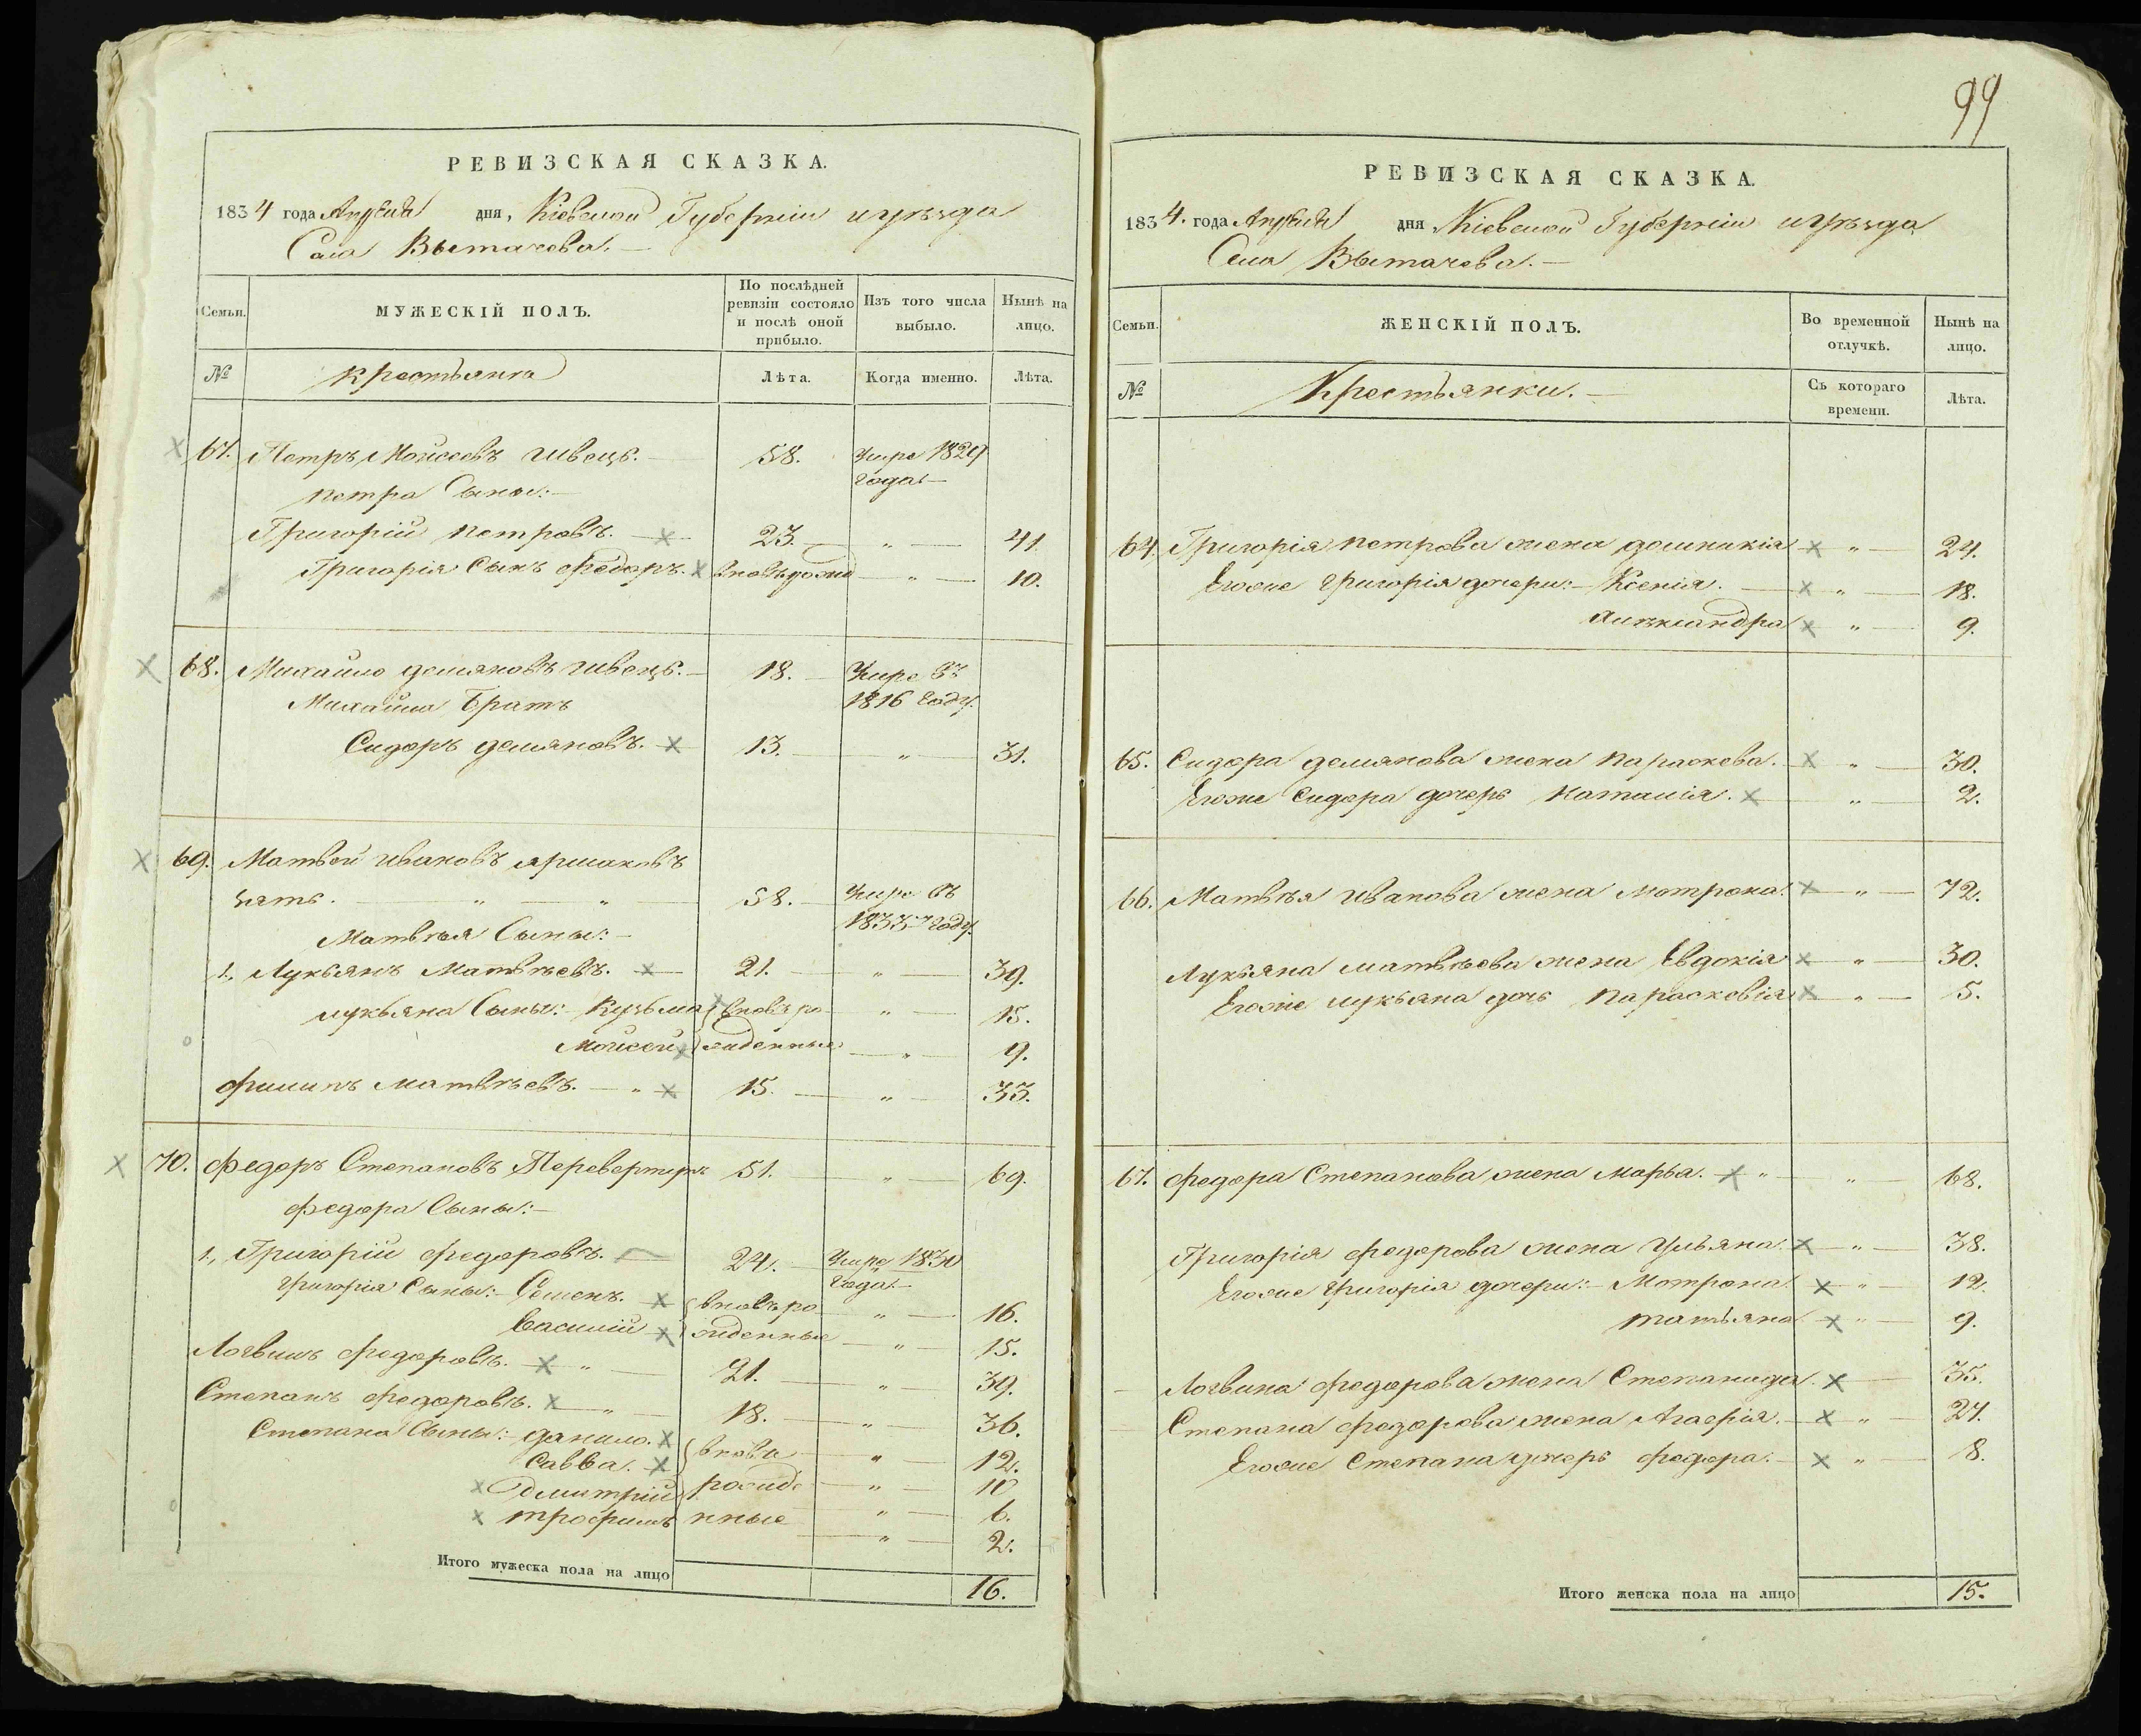 РЕВИЗСКАЯ СКАЗКА.
1834 года Апреля дня, Кіевской Губерніи и уѣзда
Села Вытачева.
Семьи. МУЖЕСКІЙ ПОЛЪ. По послѣдней ревизіи состояло и послѣ оной прибыло. Изъ того числа выбыло. Нынѣ на лицо.
№ Крестьяне Лѣта. Когда именно. Лѣта.
67. Петръ Мойсеевъ Швецъ. 58. Умре 1829
года
Петра Сыны:
Григорій Петровъ. 23. " 41
Григорія Сынъ Федоръ. " 10.
68. Михайло демяновъ Швецъ. 18. Умре въ
1816 году.
Михайла Братъ
Сидоръ демяновъ. 13. " 31.
69. Матвей Ивановъ
зять. " " 58. Умре въ
1833 году.
Матвѣя Сыны:
1., Лукьянъ Матвѣевъ. 21. " 39.
лукьяна Сыны: Кузьма вновь ро " 15.
Мойсей жденные " 9.
Филипъ Матвѣевъ. " 15. " 33.
70. Федоръ Степановъ 51. " 69.
Федора Сыны:
1., Григорій Федоровъ. 24. Умре 1830
года
Григорія Сыны: Семенъ. вновь ро " 16.
Василій жденные " 15.
Логвинъ Федоровъ. " 21. " 39.
Степанъ Федоровъ. " 18. " 36.
Степана Сыны: данило. вновь " 12.
Савва. рожде " 10
Дмитрій нные " 6.
трофимъ " 2.
Итого мужеска пола на лицо 16.
99
РЕВИЗСКАЯ СКАЗКА.
1834. года Апреля дня Кіевской Губерніи и уѣзда
Села Вытачева.
Семьи. ЖЕНСКІЙ ПОЛЪ. Во временной отлучкѣ. Нынѣ на лицо.
№ Крестьянки. Съ котораго времени. Лѣта.
64. Григорія Петрова жена домникія " 24.
Егоже Григорія дочери: Ксенія. " 18.
Александра " 9.
65. Сидора демянова жена Параскева. " 30.
Егоже Сидора дочерь Наталія. " 2.
66. Матвѣя Иванова жена Мотрона. " 72.
Лукьяна матвѣева жена Евдокія " 30.
Егоже лукьяна дочь Парасковія " 5.
67. Федора Степанова жена Марья. " " 68.
Григорія Федорова жена Ульяна. " 38.
Егоже Григорія дочери: Мотрона. " 12.
татьяна " 9.
Логвина Федорова жена Степанида. 35.
Степана Федорова жена Агафія. " 27.
Егоже Степана дочерь Федора. " 8.
Итого женска пола на лицо 15.